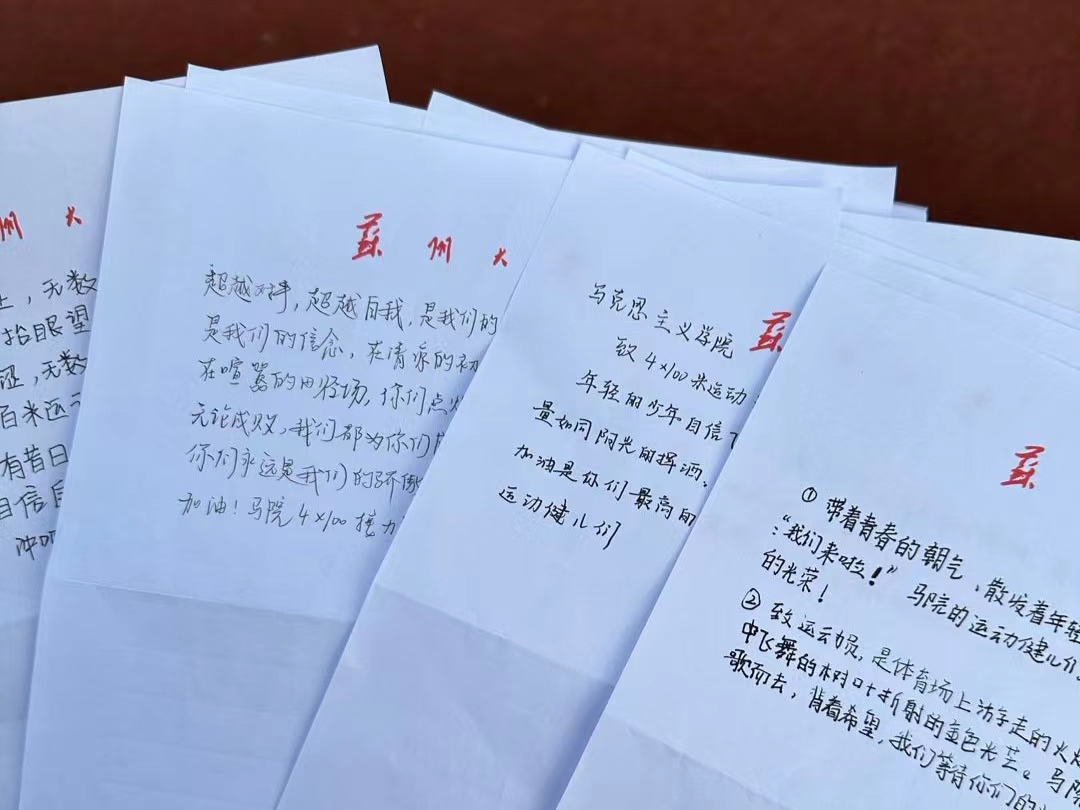 州 大
上，无数
抬眼望
证，无数
百米运动
有昔日
自信
冲吧
蘇 州 大
超越对手，超越自我，是我们的
是我们的信念，在清凉的初
在喧嚣的田径场，你们点燃
无论成败，我们都为你们
你们永远是我们的骄傲
加油！马院4×100接力
蘇
马克思主义学院
致4×100米运动
年轻的少年自信
量如同阿光的挥洒。
加油是你们最高的
运动健儿们
蘇
① 带着青春的朝气，散发着年轻
“我们来啦！”马院的运动健儿们
的光荣！
② 致运动员，是体育场上游走的火炬
中飞舞的树叶折射的金色光芒。马院
歌而去，背着希望，我们等待你们的